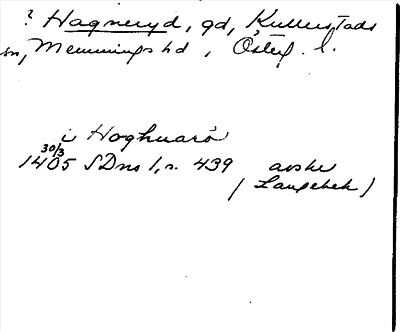 ? Hagneryd, gd, Kullerstads
sn, Memmings hd, Östg. l.
i Hoghuarö
30/3
1405 SDns 1, s. 439 avskr
(Langebek)